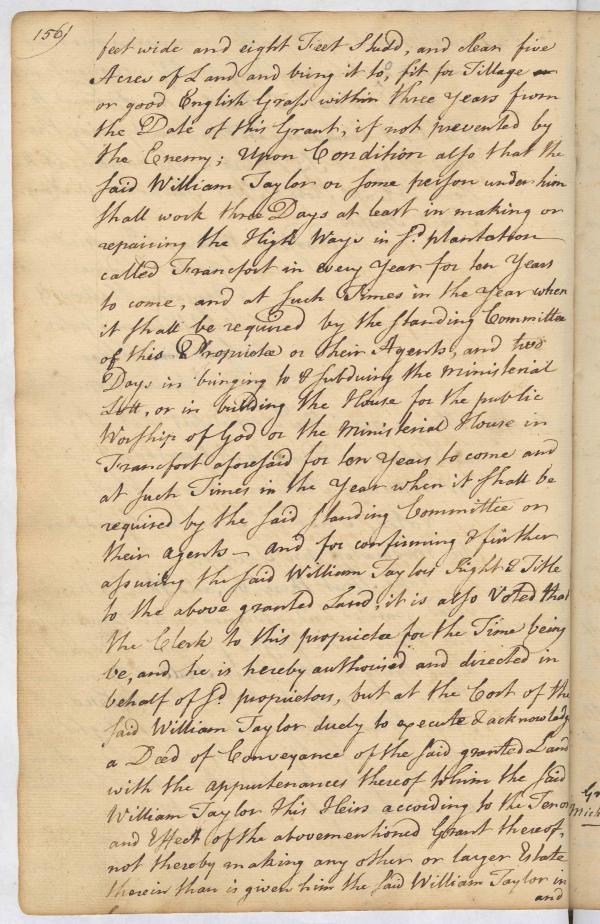 156)
feet wide and eight Feet Studd, and clear five
Acres of Land and bring it to, fit for Tillage
or good English Grass within three Years from
the Date of this Grant, if not prevented by
the Enemy; Upon Condition also that the
said William Taylor or some person under him
shall work three Days at least in making or
repairing the High Ways in sd. plantation
called Francfort in every Year for ten Years
to come, and at such Times in the Year when
it shall be required by the standing Committee
of this Proprietee or their Agents, and two
Days in bringing to & subduing the ministerial
Lott, or in building the House for the public
Worship of God or the Ministerial House in
Francfort aforesaid for ten Years to come and
at such Times in the Year when it shall be
required by the said standing Committee or
their agents – and for confirming & further
assuring the said William Taylors Right & Title
to the above granted Land, it is also Voted that
the Clerk to this proprietee for the Time being
be, and he is hereby authorised and directed in
behalf of sd. proprietors, but at the Cost of the
said William Taylor duely to execute & acknowledg
a Deed of Conveyance of the said granted Land
with the appurtenances thereof to him the said
William Taylor & his Heirs according to the Tenor
and Effect of the abovementioned Grant thereof,
not thereby making any other or larger Estate
therein than is given him the said William Taylor in
and
Gr
Mich